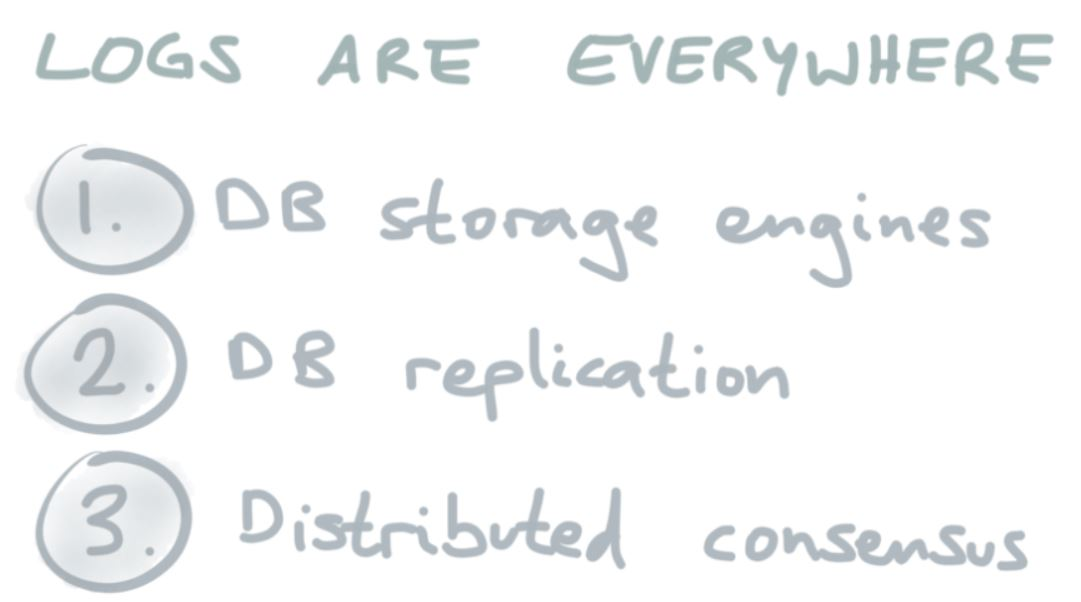 LOGS ARE EVERYWHERE
1. DB storage engines
2. DB replication
3. Distributed consensus